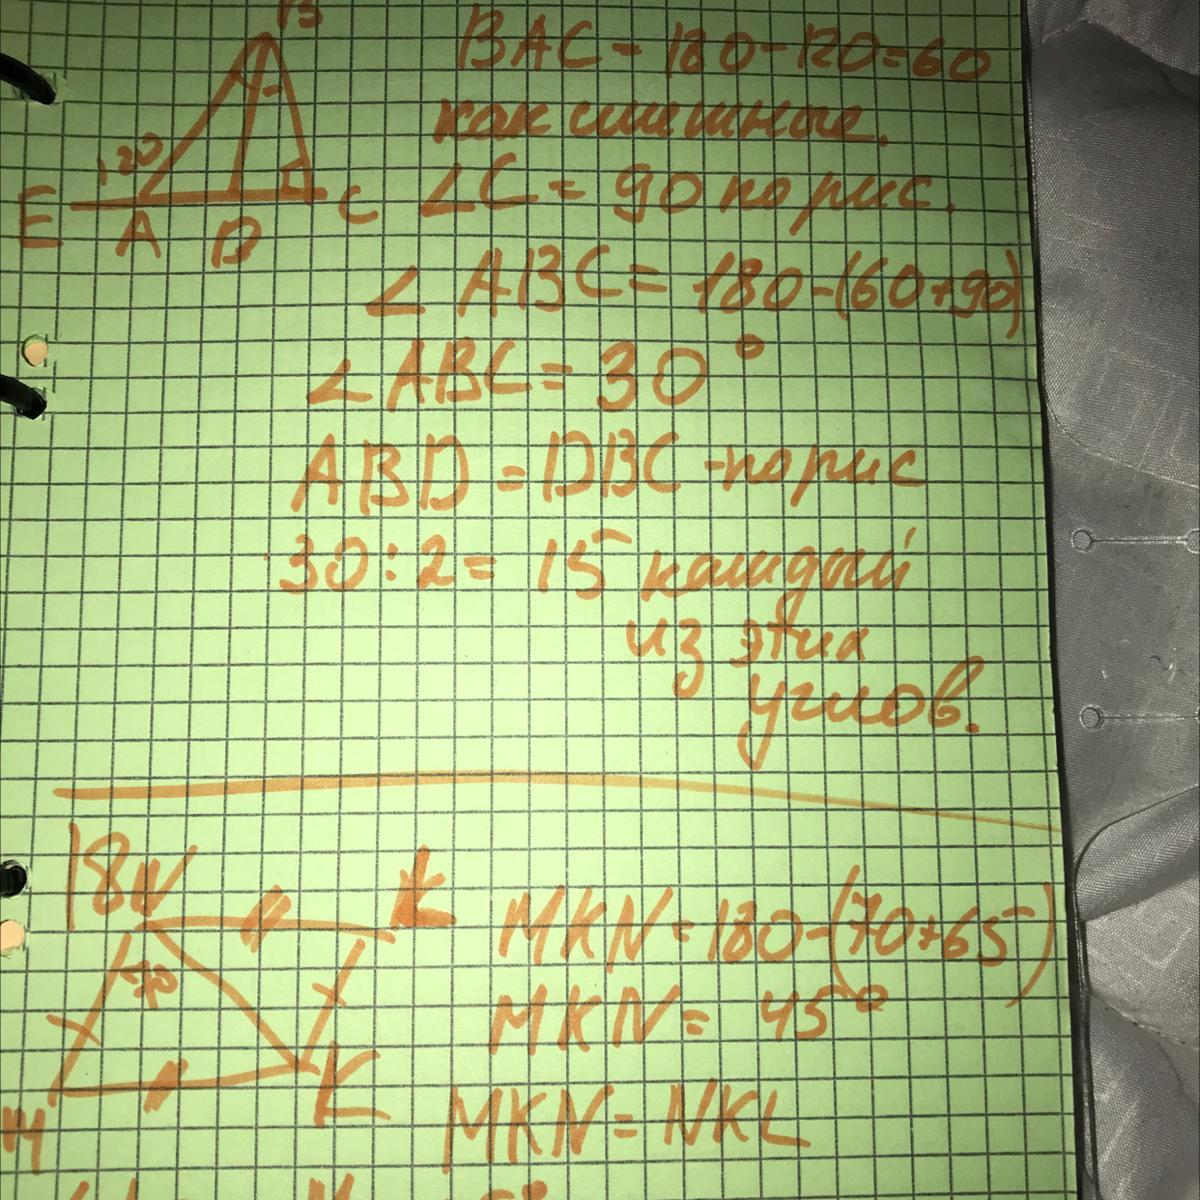 B
120
E A D C
BAC = 180-120=60
как смежные.
∠C = 90 по рис.
∠ABC = 180-(60+90)
∠ABC = 30°
ABD = DBC - по рис
30:2= 15 каждый
из этих
углов.
18
N
70
K
M
MKN = 180-(70+65)
MKN = 45°
MKN = NKL